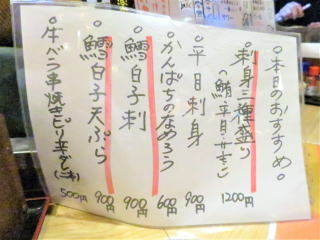 ◦本日のおすすめ◦
◦刺身三種盛り 1200円
(鮪、平目、サーモン)
◦平目刺身 900円
◦かんぱちのなめろう 600円
◦鱈白子刺 900円
◦鱈白子天ぷら 900円
◦牛バラ串焼きピリ辛ダレ(二本) 500円